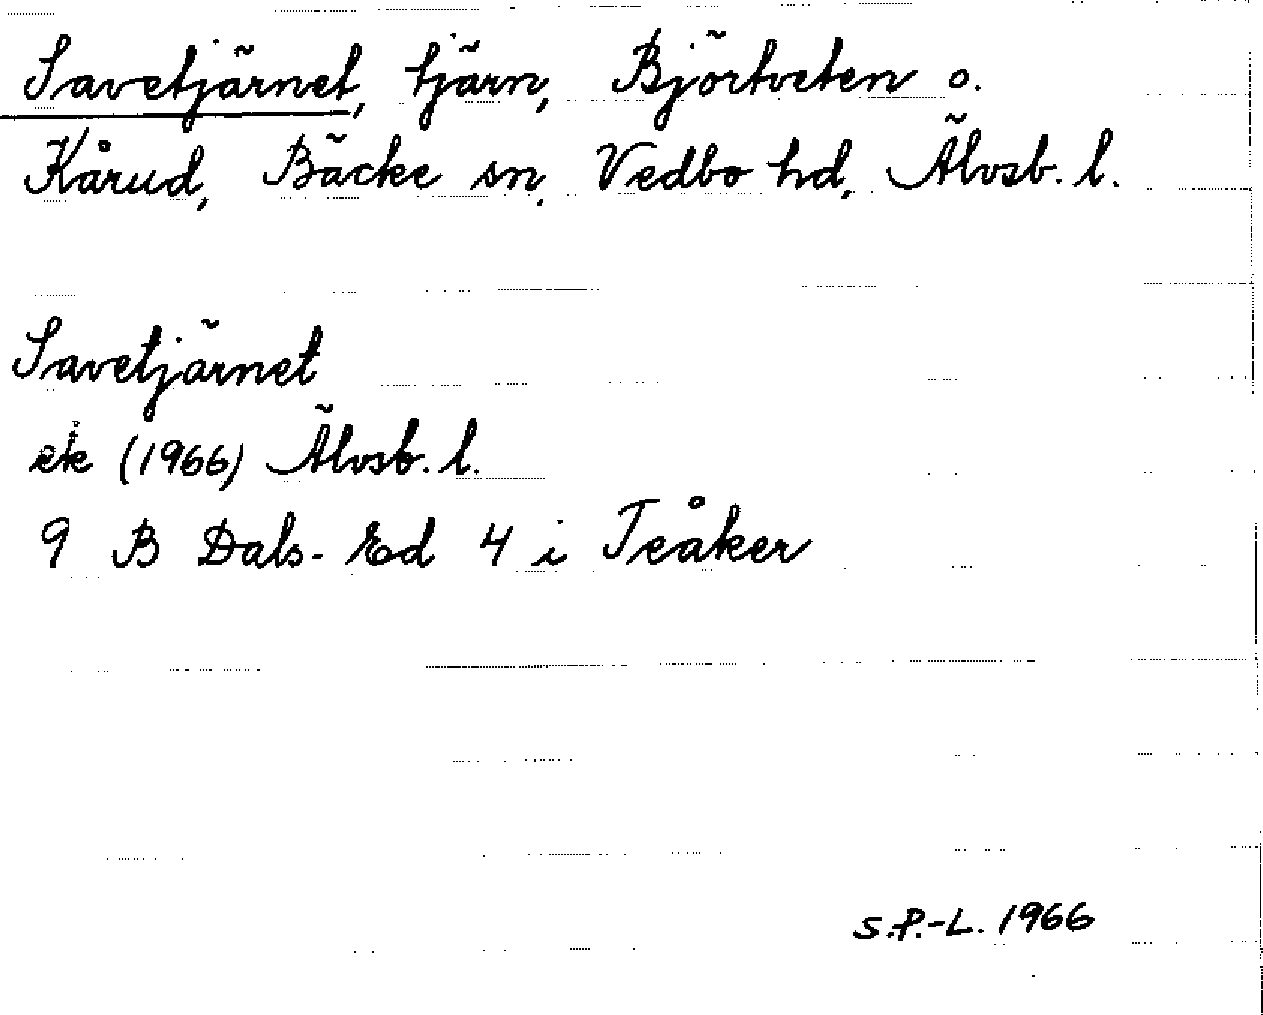 Savetjärnet, tjärn, Björtveten o.
Kårud, Bäcke sn, Vedbo hd, Älvsb. l.
Savetjärnet
ek (1966) Älvsb. l.
9 B Dals-Ed 4 i Teåker
S.P.-L. 1966